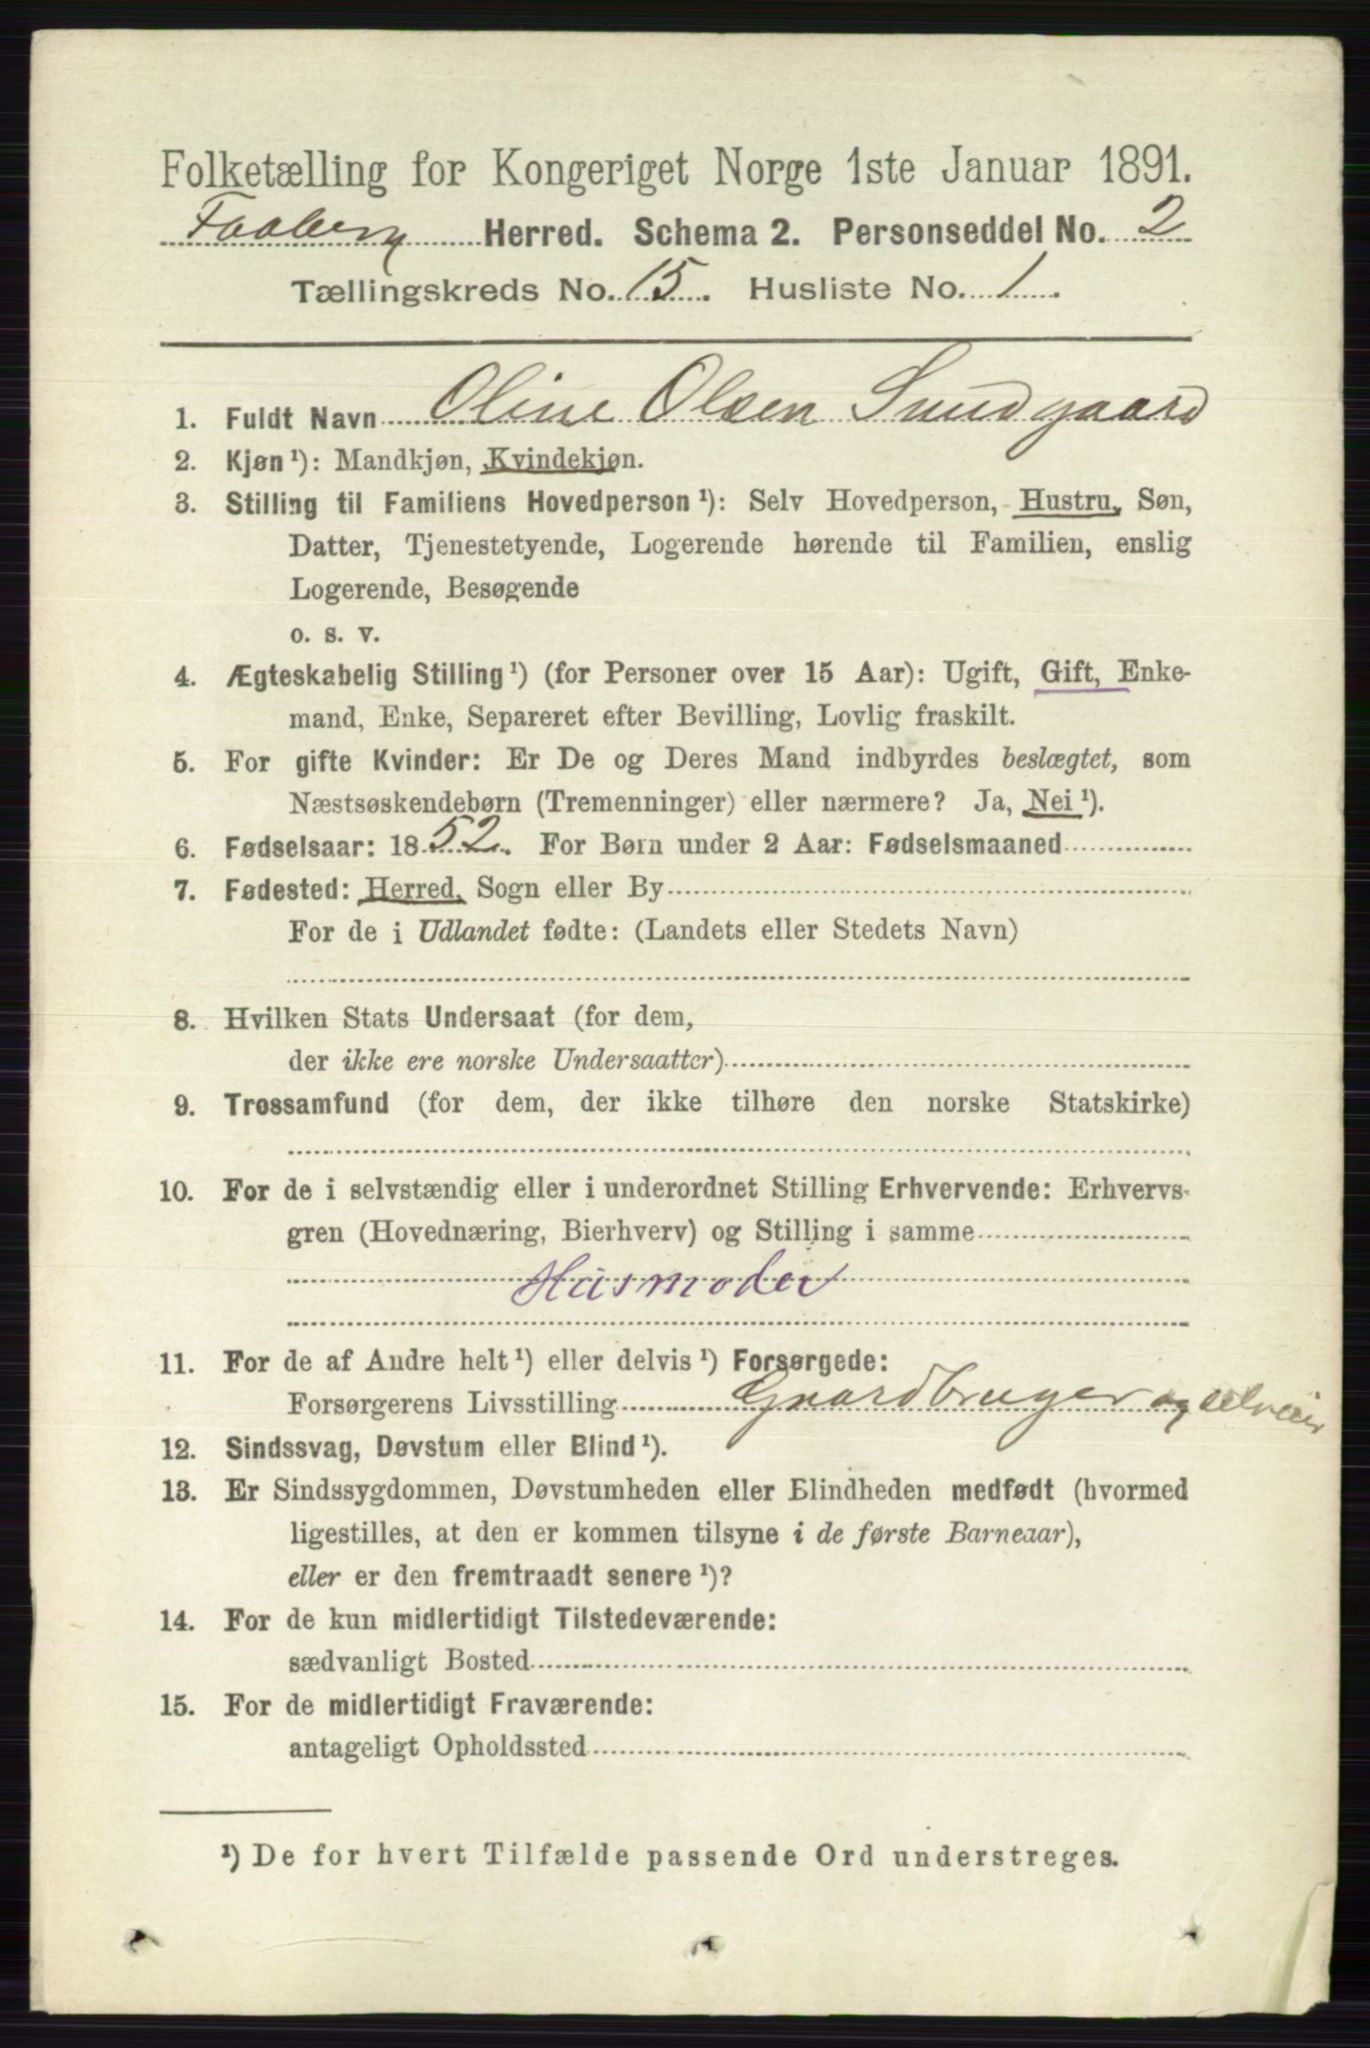 Folketælling for Kongeriget Norge 1ste Januar 1891.
Faaberg Herred. Schema 2. Personseddel No. 2
Tællingskreds No. 15. Husliste No. 1.
1. Fuldt Navn Oline Olsen Sundgaard
2. Kjøn ¹): Mandkjøn, Kvindekjøn.
3. Stilling til Familiens Hovedperson ¹): Selv Hovedperson, Hustru, Søn,
Datter, Tjenestetyende, Logerende hørende til Familien, enslig
Logerende, Besøgende
o. s. v.
4. Ægteskabelig Stilling ¹) (for Personer over 15 Aar): Ugift, Gift, Enke-
mand, Enke, Separeret efter Bevilling, Lovlig fraskilt.
5. For gifte Kvinder: Er De og Deres Mand indbyrdes beslægtet, som
Næstsøskendebørn (Tremenninger) eller nærmere? Ja, Nei ¹).
6. Fødselsaar: 1852. For Børn under 2 Aar: Fødselsmaaned
7. Fødested: Herred, Sogn eller By
For de i Udlandet fødte: (Landets eller Stedets Navn)
8. Hvilken Stats Undersaat (for dem,
der ikke ere norske Undersaatter)
9. Trossamfund (for dem, der ikke tilhøre den norske Statskirke)
10. For de i selvstændig eller i underordnet Stilling Erhvervende: Erhvervs-
gren (Hovednæring, Bierhverv) og Stilling i samme
Husmoder
11. For de af Andre helt ¹) eller delvis ¹) Forsørgede:
Forsørgerens Livsstilling Gaardbruger og selveier
12. Sindssvag, Døvstum eller Blind ¹).
13. Er Sindssygdommen, Døvstumheden eller Blindheden medfødt (hvormed
ligestilles, at den er kommen tilsyne i de første Barneaar),
eller er den fremtraadt senere ¹)?
14. For de kun midlertidigt Tilstedeværende:
sædvanligt Bosted
15. For de midlertidigt Fraværende:
antageligt Opholdssted
¹) De for hvert Tilfælde passende Ord understreges.